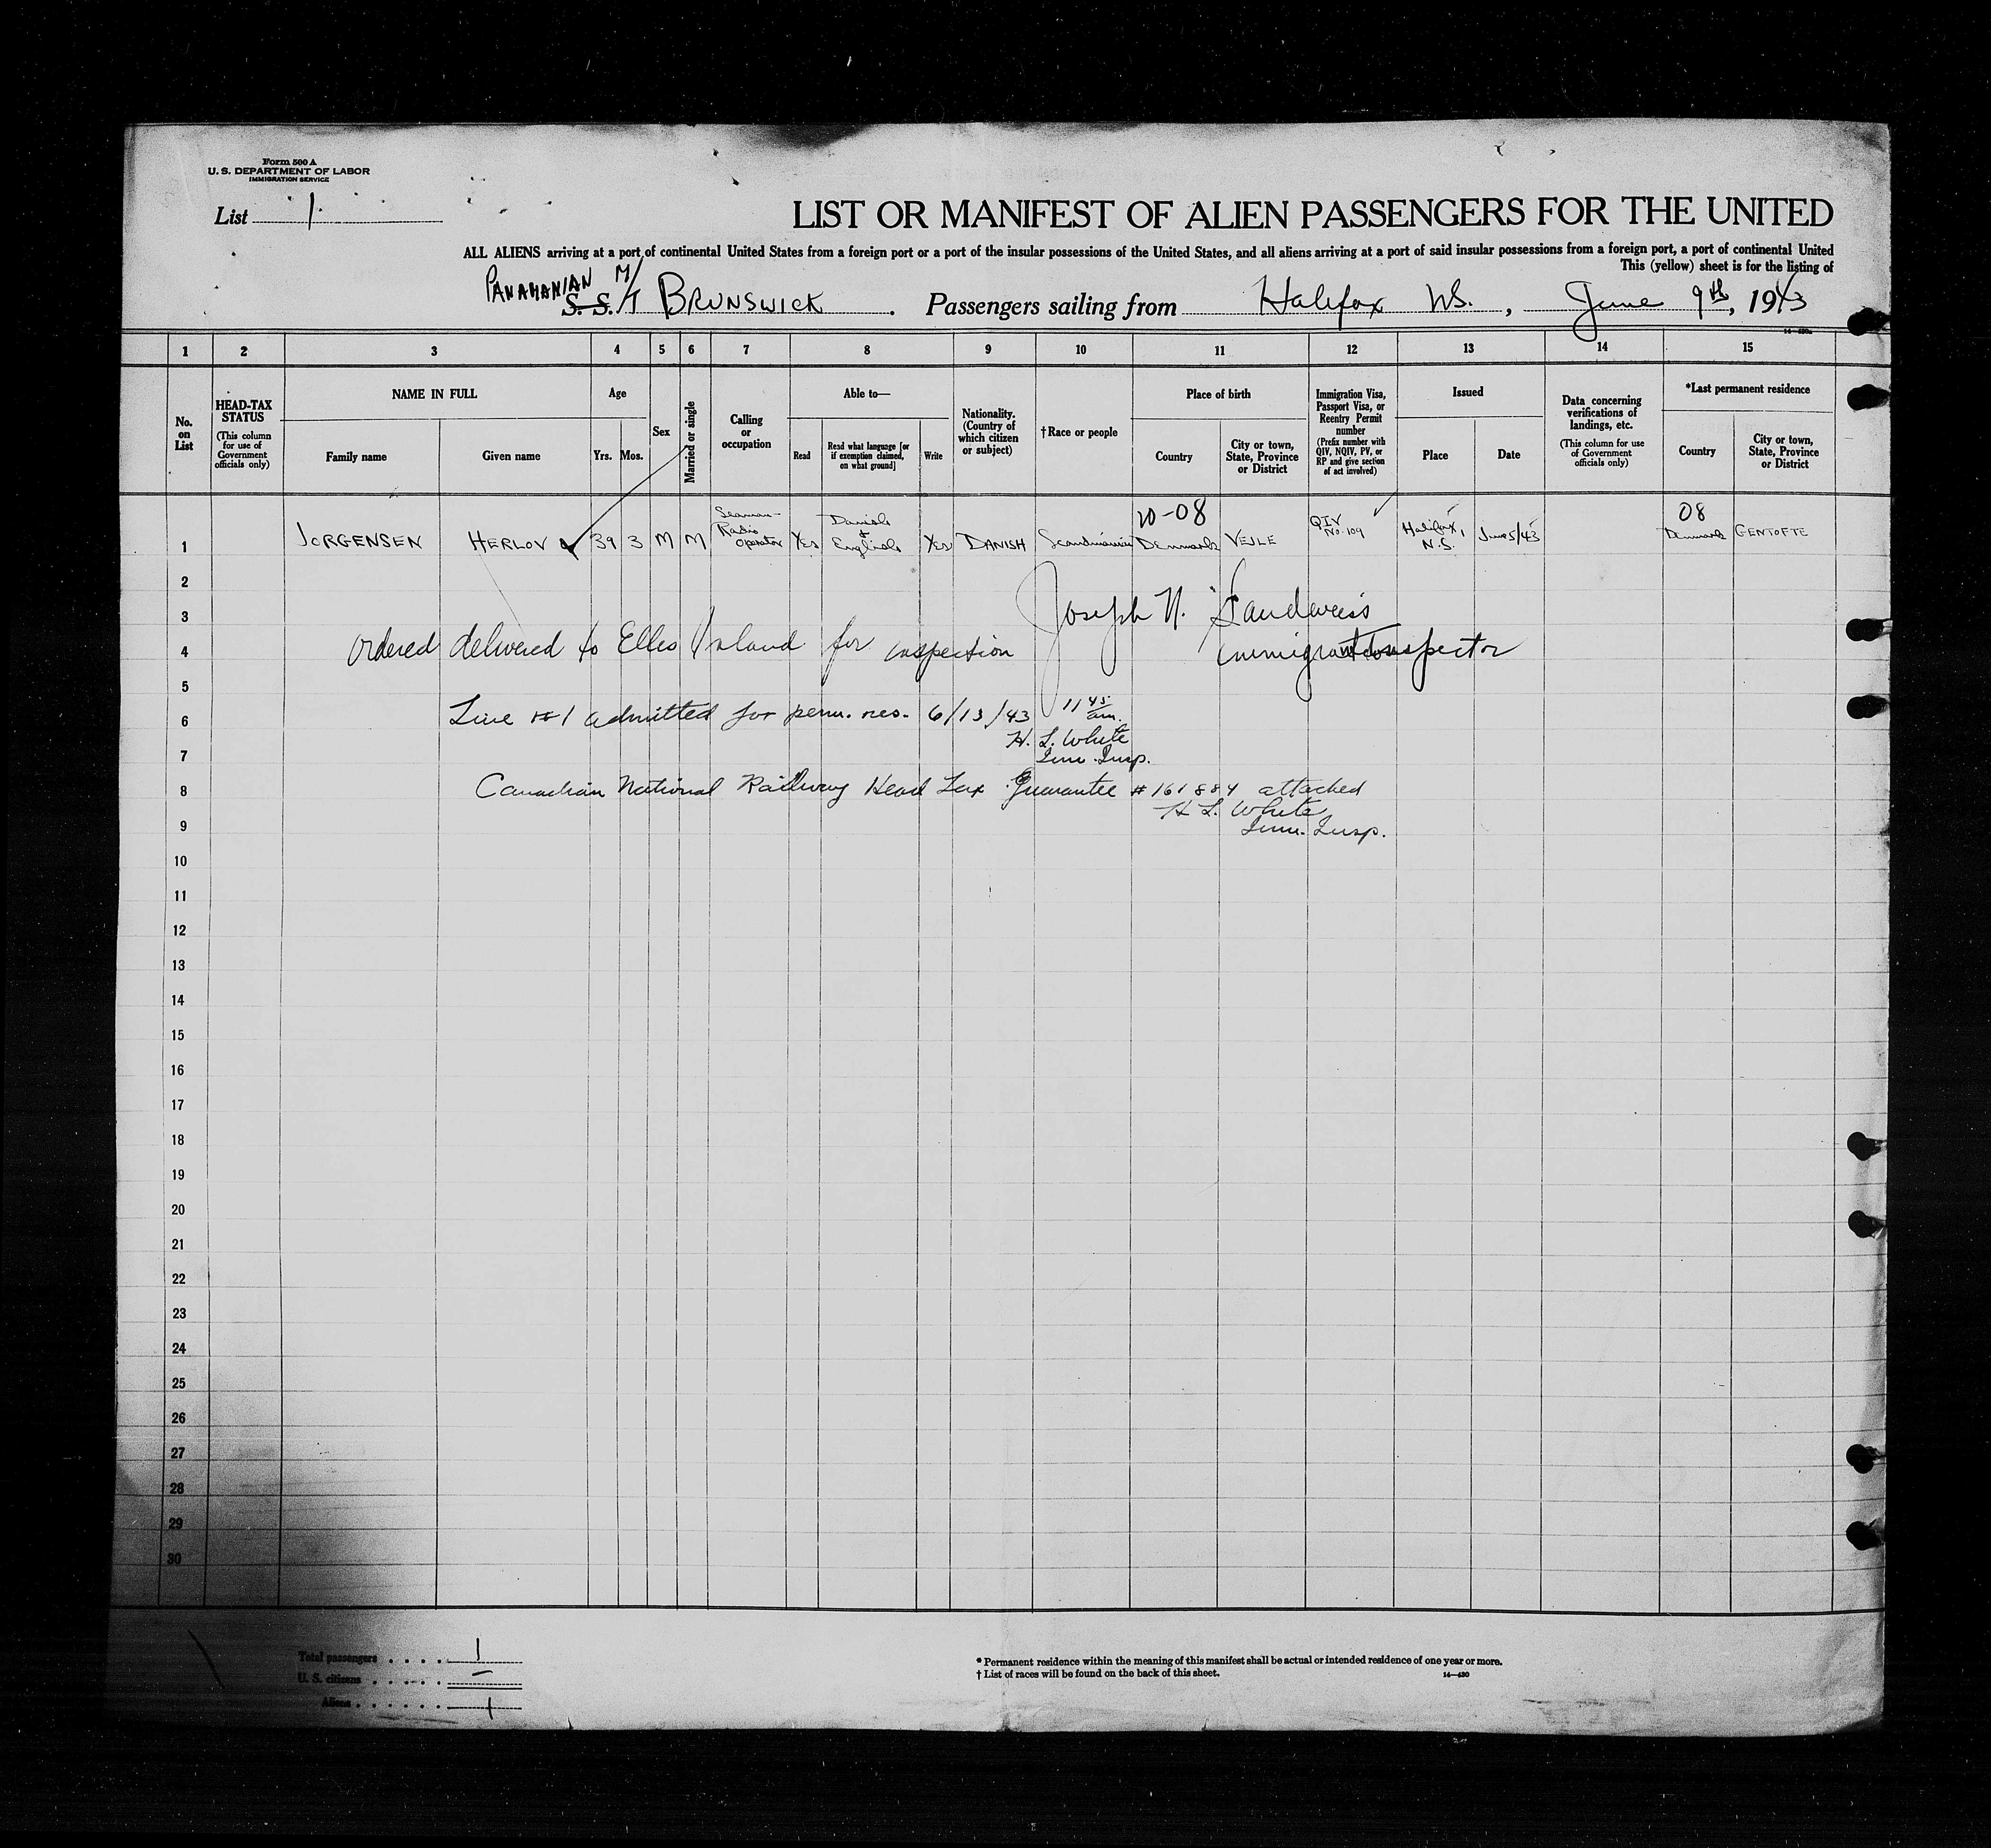 Form 500 A
U. S. DEPARTMENT OF LABOR
IMMIGRATION SERVICE
List 1
LIST OR MANIFEST OF ALIEN PASSENGERS FOR THE UNITED
ALL ALIENS arriving at a port of continental United States from a foreign port or a port of the insular possessions of the United States, and all aliens arriving at a port of said insular possessions from a foreign port, a port of continental United
This (yellow) sheet is for the listing of
PANAMANIAN S. S. M/T BRUNSWICK . Passengers sailing from Halifax N.S. , June 9th, 1943
14—430a
1 2 3 4 5 6 7 8 9 10 11 12 13 14 15
No. on List
HEAD-TAX STATUS (This column for use of Government officials only)
NAME IN FULL
Family name
Given name
Age
Yrs. Mos.
Sex
Married or single
Calling or occupation
Able to—
Read
Read what language [or if exemption claimed, on what ground]
Write
Nationality. (Country of which citizen or subject)
†Race or people
Place of birth
Country
City or town, State, Province or District
Immigration Visa, Passport Visa, or Reentry Permit number (Prefix number with QIV, NQIV, PV, or RP and give section of act involved)
Issued
Place
Date
Data concerning verifications of landings, etc. (This column for use of Government officials only)
*Last permanent residence
Country
City or town, State, Province or District
1 JORGENSEN HERLOV 39 3 M M Seaman- Radio Operator Yes Danish & English Yes DANISH Scandinavian 20-08 Denmark VEJLE QIV No. 109 Halifax, N.S. June 5/43 08 Denmark GENTOFTE
2
3 Joseph N. Sandweiss
4 Ordered delivered to Ellis Island for inspection Immigrant Inspector
5
6 Line #1 admitted for perm. res. 6/13/43 11 45 am.
H. L. White
7 Imm. Insp.
8 Canadian National Railway Head Tax Guarantee #161884 attached
H L. White
9 Imm. Insp.
10
11
12
13
14
15
16
17
18
19
20
21
22
23
24
25
26
27
28
29
30
Total passengers . . . . 1
U. S. citizens . . . . . –
Aliens . . . . . . 1
* Permanent residence within the meaning of this manifest shall be actual or intended residence of one year or more.
† List of races will be found on the back of this sheet. 14—430